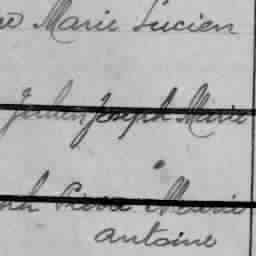 Marie Lucien
Joseph Marie
Pierre Marie
antoine